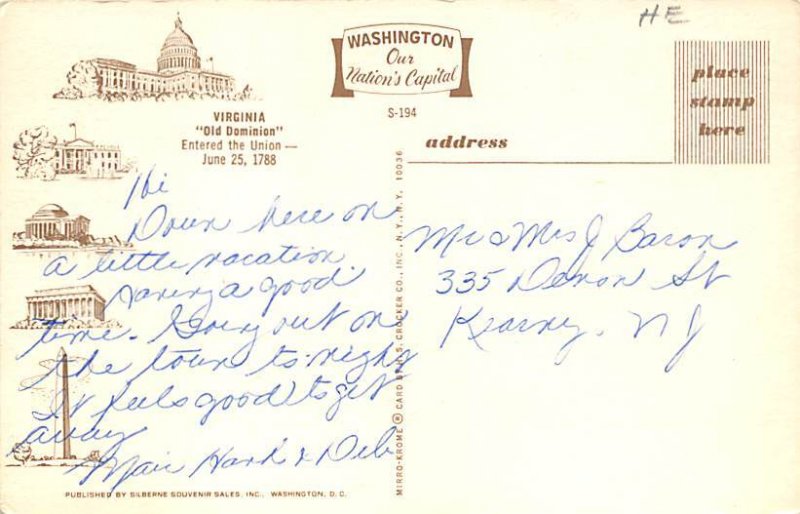 HE
WASHINGTON
Our
Nation's Capital
S-194
place
stamp
here
VIRGINIA
"Old Dominion"
Entered the Union —
June 25, 1788
address
Hi
Down here on
a little vacation.
Having a good
time. Going out on
the town to-night
It feels good to get
away
Hank & Deb
Mr & Mrs J Baron
335 Devon St
Kearny, NJ
MIRRO-KROME ® CARD BY H.S. CROCKER CO., INC., N.Y., N.Y. 10036
PUBLISHED BY SILBERNE SOUVENIR SALES, INC., WASHINGTON, D.C.